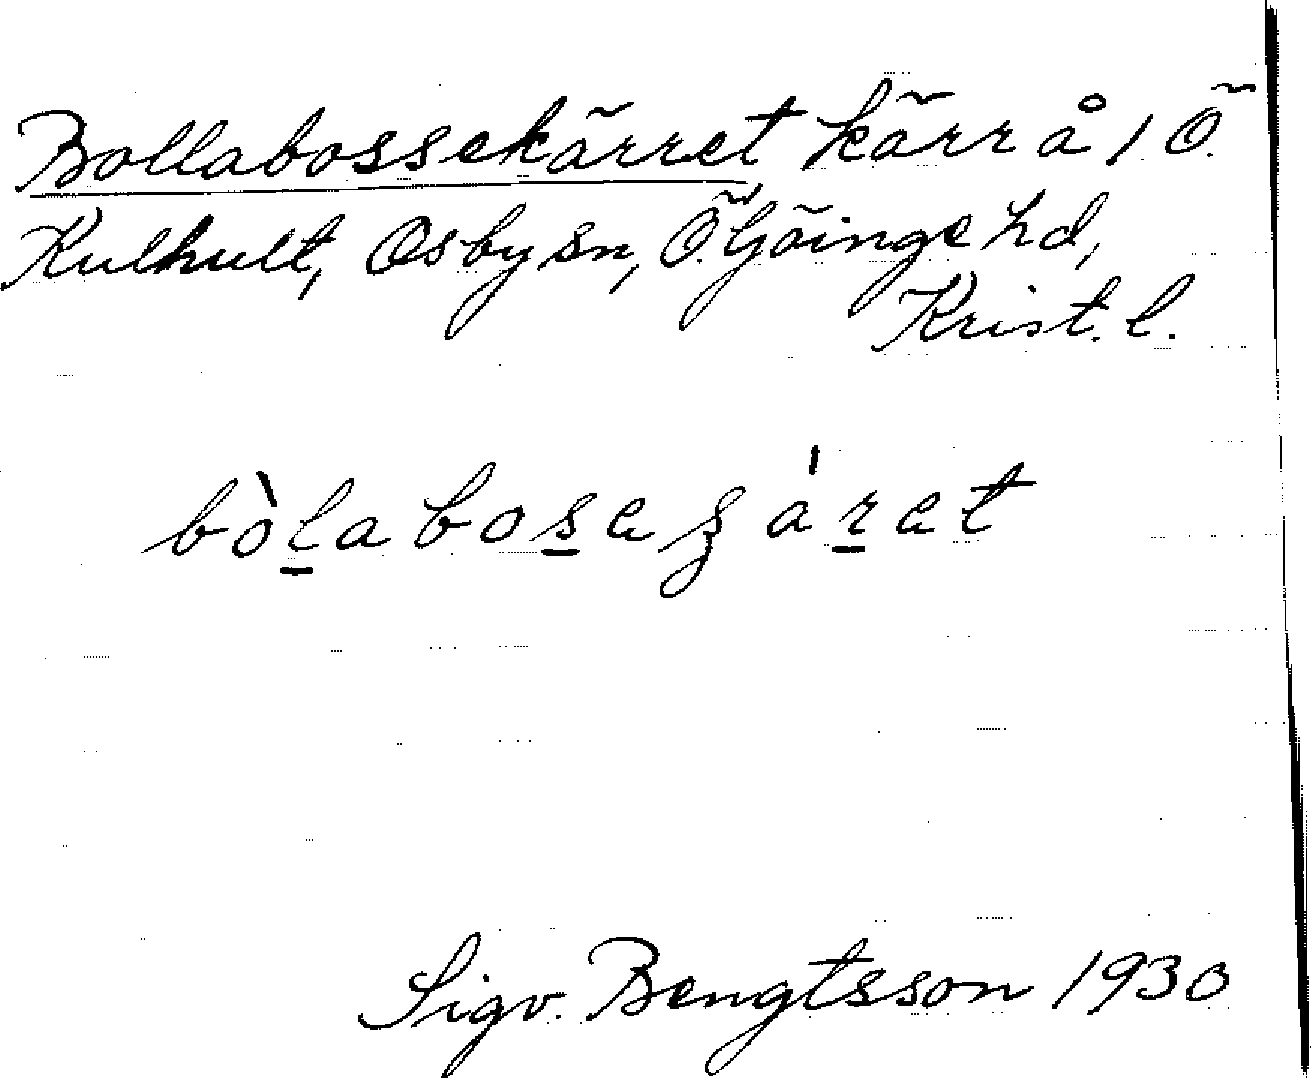 Bollabossekärret kärr å 1 Ö.
Kulhult, Osby sn, Ö. Göinge hd,
Krist. l.
bòl̲abos̲eʂár̲et
Sigv. Bengtsson 1930